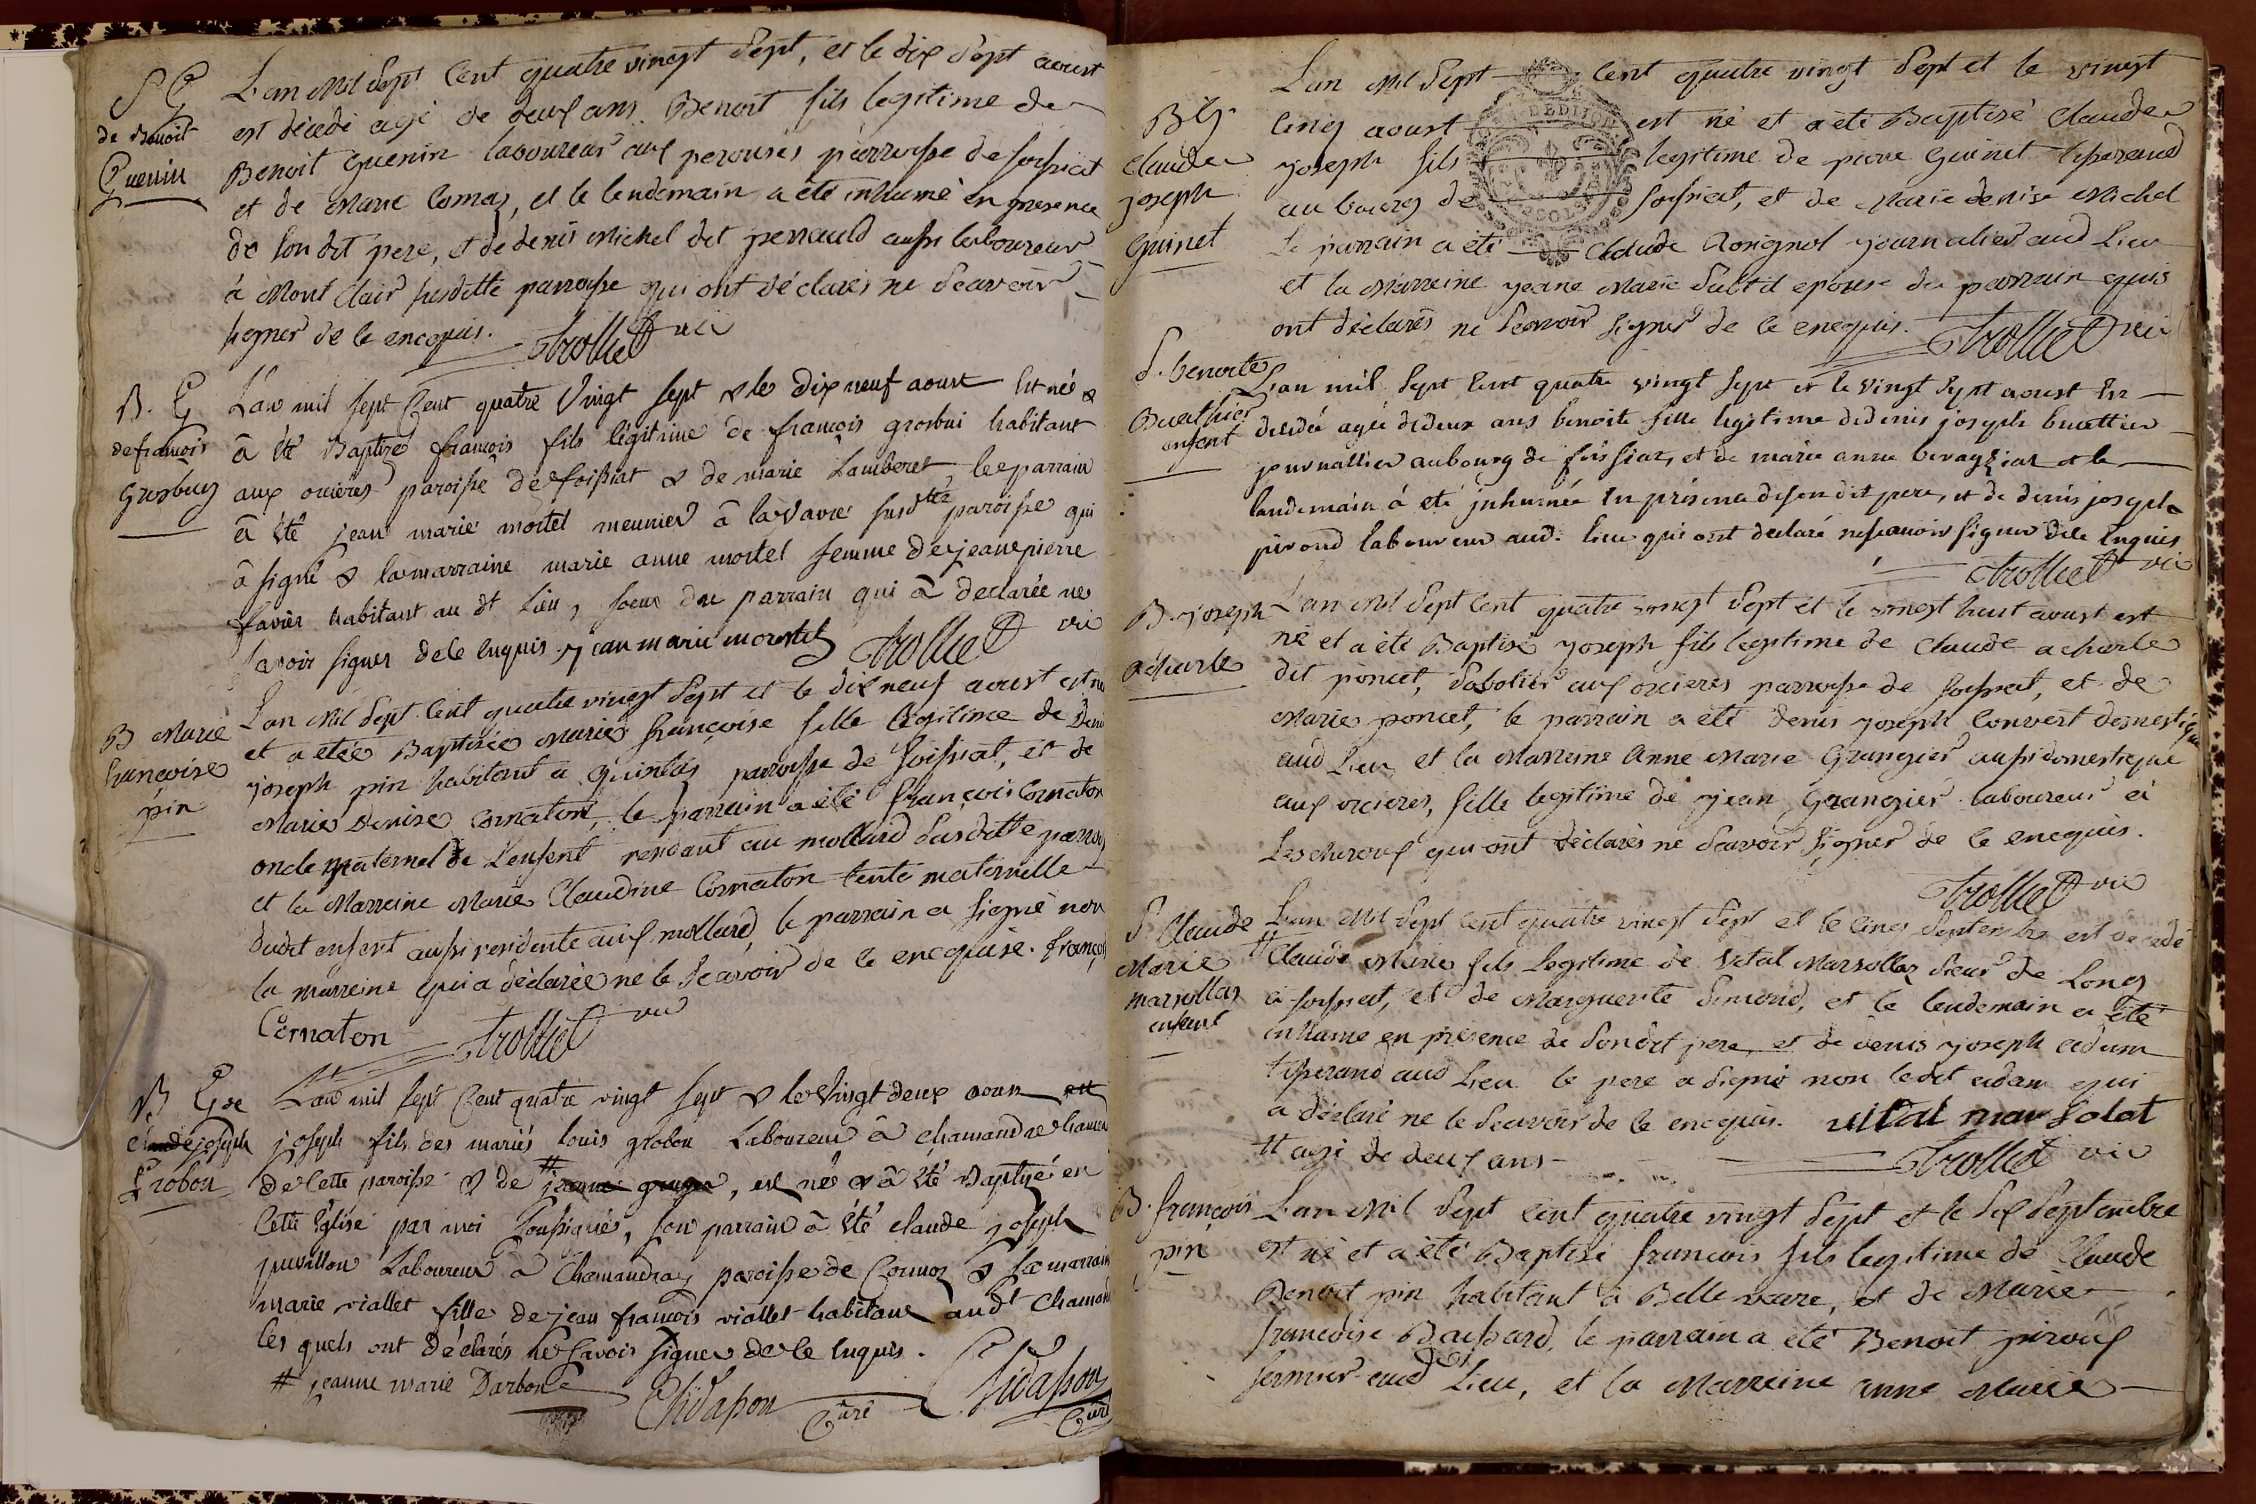 S G
de Benoit
Guenin
L'an Mil Sept Cent quatre vingt Sept, et le dix Sept aoust
est décedé agé de deux ans Benoit fils legitime de
Benoit Guenin laboureur aux perouses parroisse de foissiat
et de Marie Comas, et le lendemain a été inhumé en presence
de son dit pere, et de denis Michel dit perrauld aussi laboureur
à Mont Clair susditte parroisse qui ont déclarés ne Scavoir
signer de ce enequis. Trolliet vic
B. G
de françois
Grosbuy
L'an mil sept Cent quatre Vingt sept & le dix neuf aoust Est né &
â été Baptizé françois fils légitime de françois grosbui habitant
aux orcieres paroisse de foissiat & de marie Lamberet le parrain
â été jean marie mortel meunier â la Vavre susdtte paroisse qui
â signé & la marraine marie anne mortel femme de jean pierre
favier habitant au dt Lieu, soeur du parrain qui â declarée ne
savoir signer de ce enquis. jean marie mortel Trolliet vic
B Marie
françoise
pin
L'an Mil Sept Cent quatre vingt Sept et le dix neuf aoust est né
et a etée Baptisée Marie françoise fille legitime de Denis
joseph pin habitant a quintas parroisse de foissiat, et de
Marie Denise Cornaton, le parrain a été françois Cornaton
oncle maternel de L'enfent residant au mollard Susditte parroi
et la Marreine Marie Claudine Cornaton tente maternelle
dudit enfent aussi residente aux mollard, le parrain a signé non
la marreine qui a déclarée ne le Scavoir de ce enequise. françois
Cornaton Trolliet vic
B G de
claude joseph
Grobon
L'an mil sept Cent quatre vingt sept & le vingt deux aoust est
joseph fils des mariés louis grobon Laboureur â chamandre hameau
de Cette paroisse & de # jeanne , est né & â été Baptizé en
Cette Eglise par moi soussigné, son parrain â été claude joseph
puvillon Laboureur â Chamandray paroisse de Cormoz & sa marraine
marie viallet fille de jean françois viallet habitant audt Chamand
les quels ont déclarés ne savoir signer de ce enquis.
# jeanne marie Darbon Chidapon Curé Chidapon
Curé
B G.
Claude
joseph
Guinet
L'an Mil Sept Cent quatre vingt Sept et le vingt
Cinq aoust est né et a été Baptisé Claude
joseph fils legitime de pierre Guinet tisserand
au bourg de foissiat, et de Marie denise Michel
Le parrain a été Claude Rosignol journalier aud Lieu
et la Marreine jeane Marie Subtil epouse du parrain qui
ont déclarés ne Scavoir signer de ce enequis. Trolliet vic
S. benoite
Buathier
enfent
L'an mil sept cent quatre vingt sept et le vingt sept aoust est
decedée agée de deux ans benoite fille legitime de denis joseph buattier
journallier au bourg de foissiat, et de marie anne et le
landemain à eté inhumée en présence de son dit pere, et de denis joseph
pirond laboureur aud. lieu qui ont declaré ne scavoir signer de ce enquis
Trolliet vic
B. joseph
acharle
L'an Mil Sept Cent quatre vingt Sept et le vingt huit aoust est
né et a été Baptisé joseph fils legitime de Claude acharle
dit poncet, Sabotier aux orcieres parroisse de foissiat, et de
Marie poncet, le parrain a été denis joseph Convert domestique
aud Lieu et la Marreine Anne Marie Grangier aussi domestique
aux orcieres, fille legitime de jean Grangier laboureur à
Lescheroux qui ont déclarés ne Scavoir signer de ce enequis.
Trolliet vic
S Claude
Marie
marsollas
enfent
L'an Mil Sept Cent quatre vingt Sept et le Cinq Septembre est decedé
# Claude Marie fils Legitime de Vital Marsollas Sieur de Long
à foissiat, et de Marguerite Simond, et le lendemain a été
inhumé en presence de Son dit pere, et de denis joseph adam
tisserand aud Lieu le pere a Signé non ledit adam qui
a déclaré ne le Scavoir de ce enequis. vital marsolat
# agé de deux ans Trolliet vic
B. françois
pin
L'an Mil Sept Cent quatre vingt Sept et le Six Septembre
est né et a été Baptisé francois fils legitime de Claude
Benoit pin habitant à Belle vavre, et de Marie
francoise Bachard, le parrain a été Benoit piroux
fermier aud Lieu, et la Marreine anne Marie